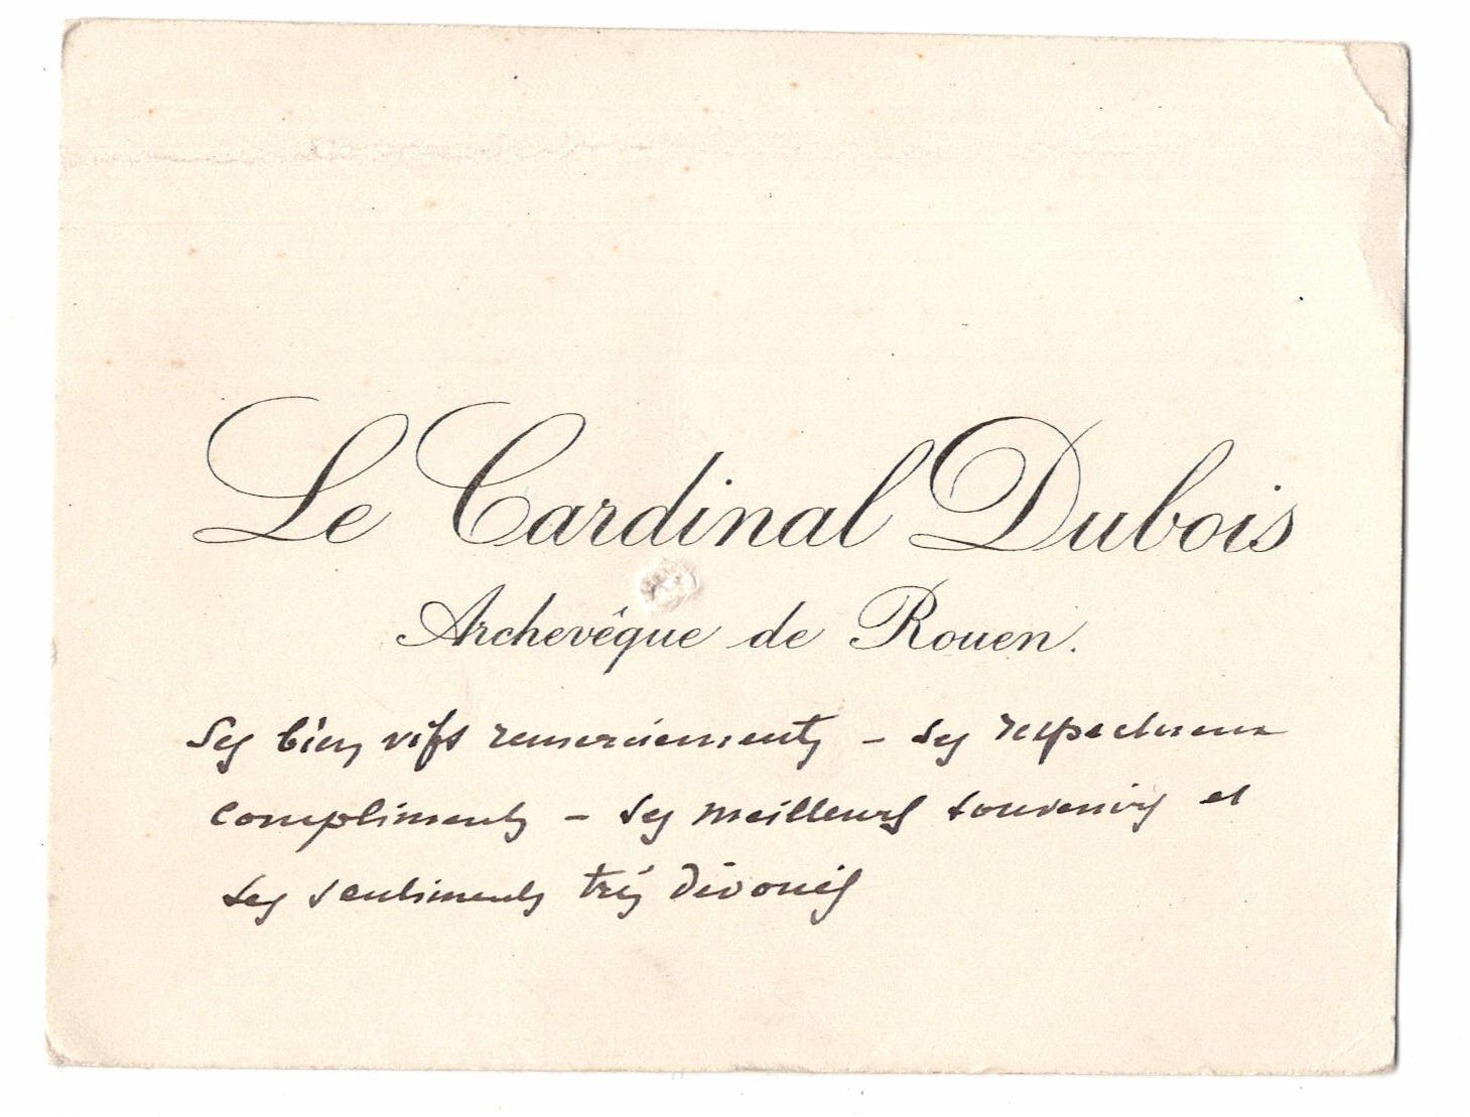 Le Cardinal Dubois
Archevêque de Rouen.
Ses bien vifs remerciements – Ses respectueux
compliments – Ses meilleurs souvenirs et
Ses sentiments très dévoués